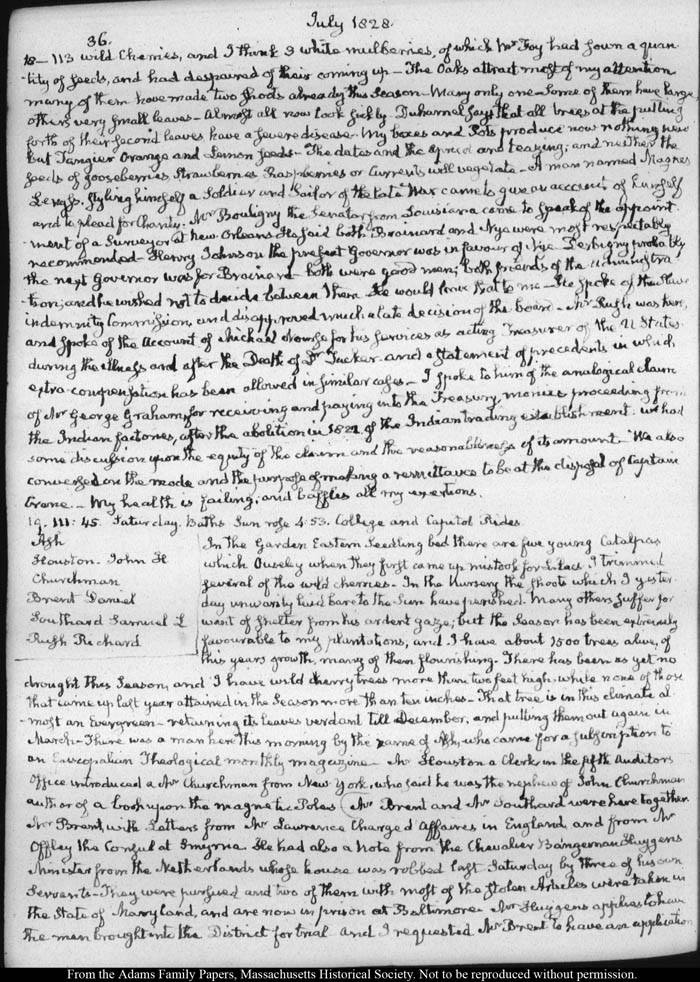 36.
July 1828.
18 — 113 wild Cherries, and I think 3 white mulberries, of which Mr Foy had sown a quan-
tity of seeds, and had despaired of their coming up — The Oaks attract most of my attention
many of them have made two shoots already this Season — Many only one — Some of them have large
others very small leaves — Almost all now look sickly. Duhamel says that all trees at the putting
forth of their second leaves, have a severe disease — My boxes and Pots produce now nothing new
but Tangier Orange and Lemon seeds — The dates and the are teazing; and neither the
seeds of gooseberries, Strawberries Raspberries or Currents will vegetate — A man named Magnes
styling himself a Soldier and Sailor of the late War came to give an account of himself
and to plead for Charity. Mr Bouligny the Senator from Louisiana came to speak of the appoint
-ment of a Surveyor at New Orleans He said both Brainard and Nye were most respectably
recommended — Henry Johnson the present Governor was in favour of Nye — Derbigny probably
the next Governor was for Brainard — both were good men; both friends of the Administra
-tion; and he wished not to decide between them He would leave that to me — He spoke of the Slave
indemnity Commission, and disapproved much a late decision of the board — Mr Rush was here,
and spoke of the Account of Michael Nourse for his services as acting Treasurer of the U States
during the illness and after the Death of Dr Tucker — and a statement of precedents in which
extra-compensation has been allowed in similar cases — I spoke to him of the analogical claim
of Mr George Graham, for receiving and paying into the Treasury, monies proceeding from
the Indian factories, after the abolition in 1822 of the Indian trading establishment. We had
some discussion upon the equity of the claim and the reasonableness of its amount — We also
conversed on the mode and the purpose of making a remittance to be at the disposal of Captain
Crane — My health is failing, and baffles all my exertions.
19. III: 45. Saturday. Baths Sun rose 4:53. College and Capitol Rides.
Ash
Houston — John H
Churchman
Brent Daniel
Southard Samuel L
Rush Richard
In the Garden Eastern Seedling bed there are five young Catalpas
which Ouseley when they first came up mistook for Lilacs. I trimmed
several of the wild cherries — In the Nursery the shoots which I yester-
day unwarily laid bare to the Sun have perished. Many others suffer for
want of shelter from his ardent gaze; but the Season has been extremely
favourable to my plantations, and I have about 1500 trees alive, of
this years growth, many of them flourishing. There has been as yet no
drought this Season, and I have wild cherry trees more than two feet high, while none of those
that came up last year attained in the Season more than ten inches — That tree is in this climate al
-most an Evergreen — retaining its leaves verdant till December, and putting them out again in
March — There was a man here this morning by the name of Ash, who came for a subscription to
an Episcopalian Theological monthly magazine — Mr Houston a Clerk in the fifth Auditors
Office introduced a Mr Churchman from New York, who said he was the nephew of John Churchman
author of a book upon the magnetic Poles (Mr Brent and Mr Southard were here together
Mr Brent, with Letters from Mr Lawrence Chargé d'Affaires in England, and from Mr
Offley the Consul at Smyrna He had also a Note from the Chevalier Bangeman Huygens
Minister from the Netherlands whose house was robbed last Saturday by three of his own
Servants — They were pursued and two of them with most of the stolen Articles were taken in
the State of Maryland, and are now in prison at Baltimore. Mr Huygens applies to have
the men brought into the District for trial and I requested Mr Brent to have an application
From the Adams Family Papers, Massachusetts Historical Society. Not to be reproduced without permission.